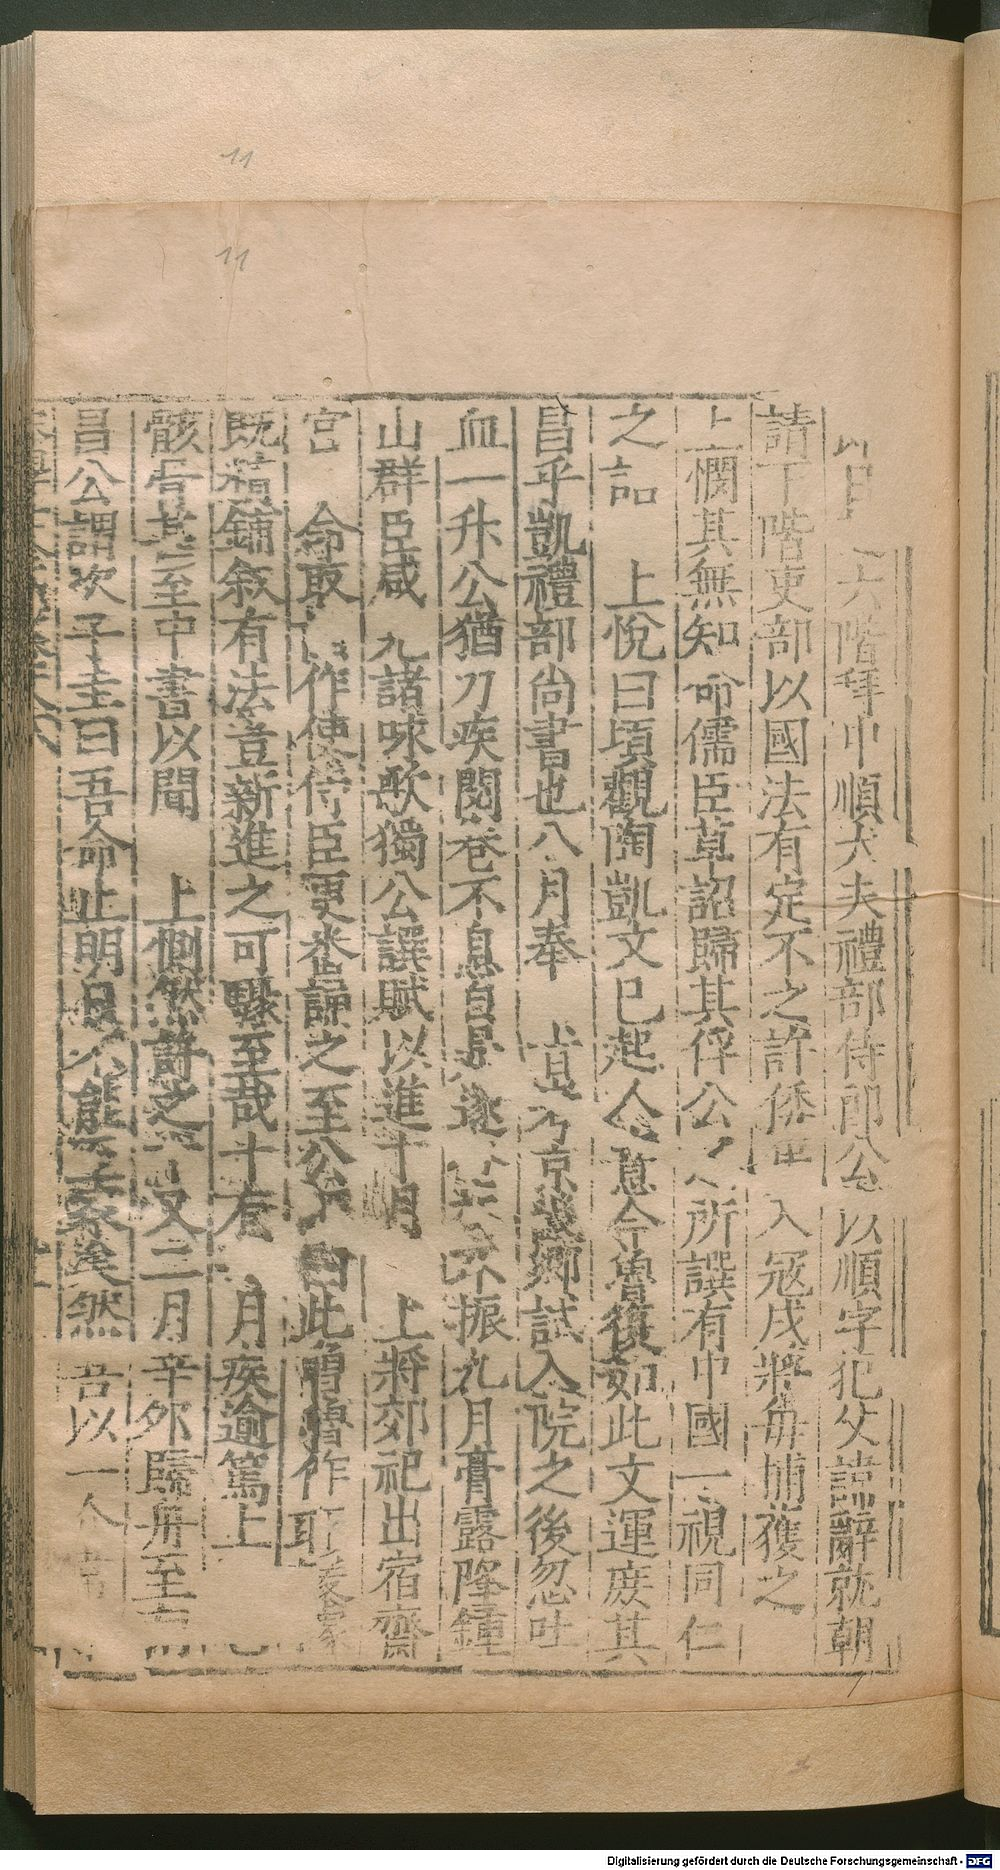 11
11
階拜中順大夫禮部侍郎公以順字犯父諱辭就朝
請下階吏部以國法有定不之許倭 入寇戍將毎捕獲之
上憫其無知命儒臣草詔歸其俘公 所譔有中國一視同仁
之詔 上悅曰頃觀陶凱文已起人意今魯復如此文運庶其
昌乎凱禮部尚書也八月奉 旨乃京畿鄉試入院之後忽吐
血一升公猶力疾閱卷不息自是遂 不振九月膏露降鍾
山群臣咸 諸咏歌獨公譔賦以進十月 上將郊祀出宿齋
宮 命取 作使侍臣更番誦之至公 曰此曾魯作耶
既 鋪叙有法豈新進之可驟至哉十有 月疾逾篤上
骸骨 至中書以聞 上惻然許之 又三月辛卯歸舟至南
昌公謂次子圭曰吾命止明日不能 矣然吾以一介
Digitalisierung gefördert durch die Deutsche Forschungsgemeinschaft - DFG